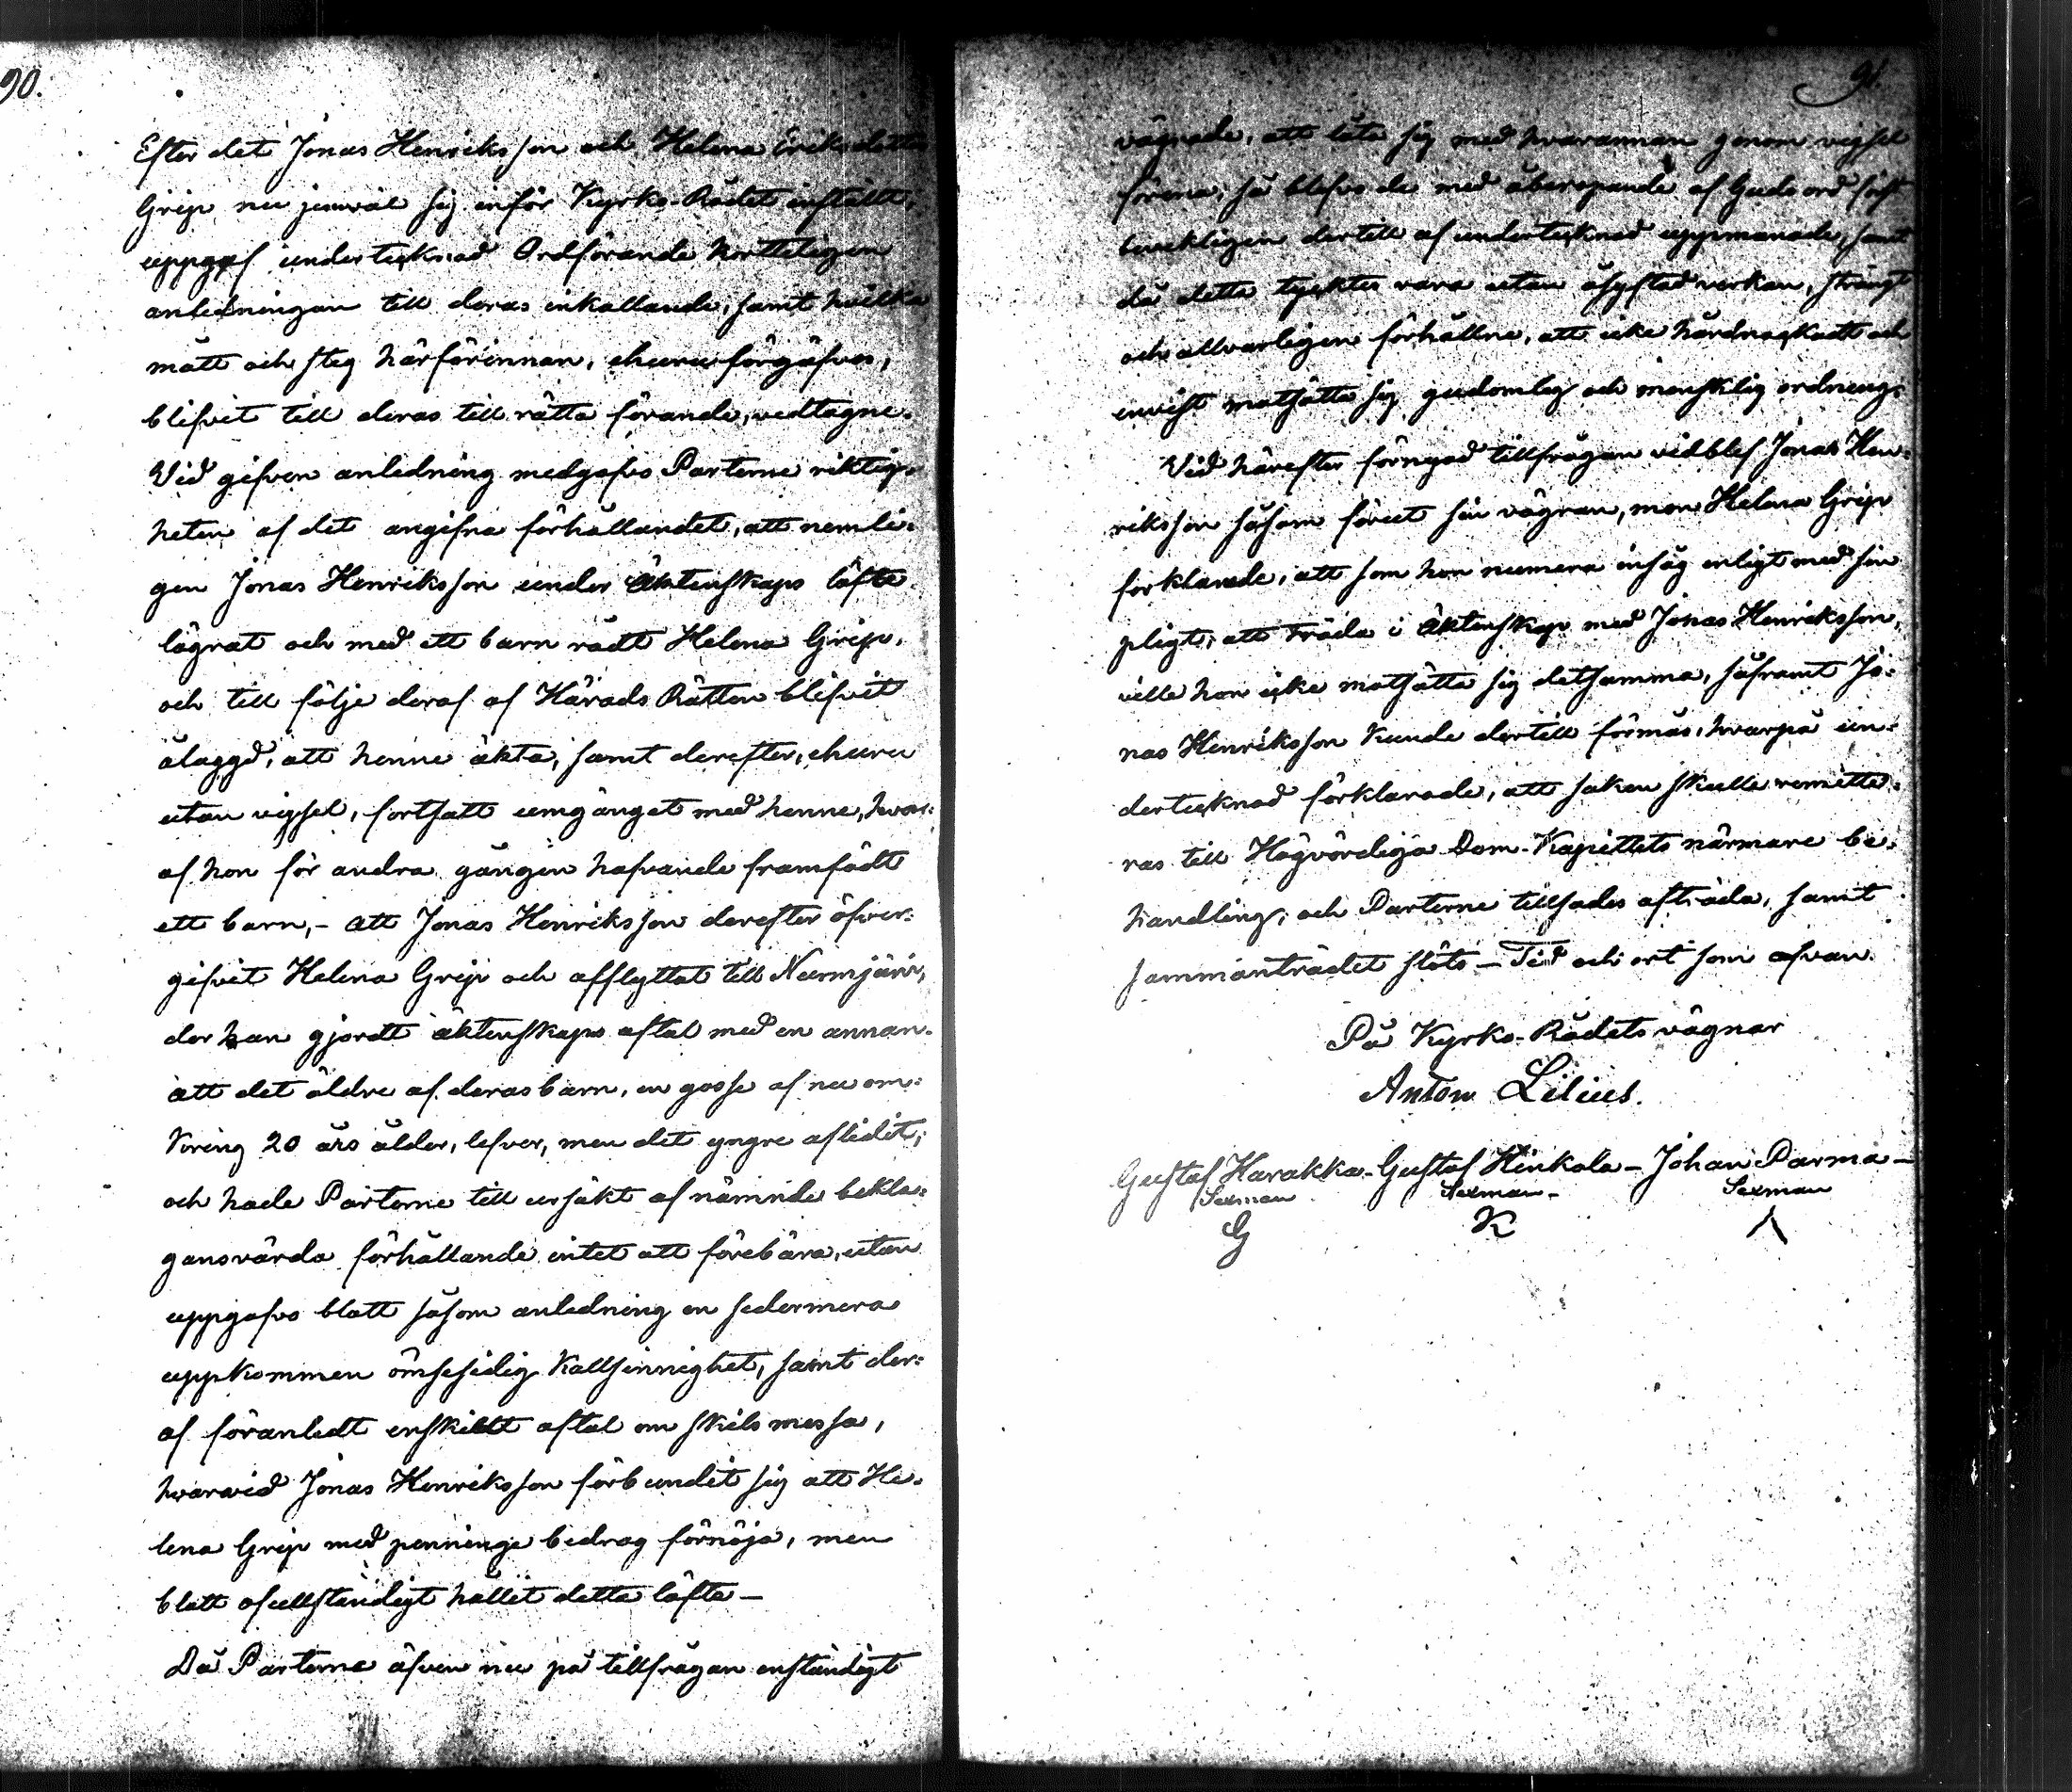 90.
Efter det Jonas Henriksson och Helena Eriksdotter
Grip nu jemväl sig inför Kyrko-Rådet inställt,
uppgaf undertecknad Ordförande kortteligen
anledningan till deras inkallande, samt hvilka
mått och steg härförinnan, ehuru förgäfves,
blifvit till deras till rätta förande, vedtagne.
Vid gifven anledning medgafvo Parterne riktig-
heten af det angifna förhållandet, att nemli-
gen Jonas Henriksson under Äktenskaps löfte
lägrat och med ett barn rådt Helena Grip,
och till följe deraf af Härads Rätten blifvit
ålaggd, att henne äkta, samt derefter, ehuru
utan vigsel, fortsatt umgänget med henne, hvar-
af hon för andra gången hafvande framfödt
ett barn, - att Jonas Henriksson derefter öfver-
gifvit Helena Grip och afflyttat till Nurmijärvi,
der han gjordt äktenskaps aftal med en annan.
att det äldre af deras barn, en gosse af nu om-
kring 20 års ålder, lefver, men det yngre aflidit;
och hade Parterne till ursäkt af nämnde bekla-
gansvärda förhållande intet att förebära, utan
uppgafvo blott såsom anledning en sedermera
uppkommen ömsesidig Kallsinnighet, samt der-
af föranledt enskildt aftal om skilsmessa,
hvarvid Jonas Henriksson förbundit sig att He-
lena Grip med penninge bedrag förnöja, men
blott ofullständigt hållet detta löfte —
Då Parterne äfven nu på tillfrågan enständigt
91.
vägrade, att låta sig med hvarannan genom vigsel
förena, så blefvo de med åberopande af Guds ord
dertill af undertecknad uppmanade, samt
då detta tycktes vara utan åsyftad verkan, strängt
och allvarligen förhållne, att icke hårdnackadt och
envist motsätta sig gudomlig och mensklig ordning.
Vid härefter förnyad tillfrågan vidblef Jonas Hen-
riksson såsom förut sin vägran, men Helena Grip
förklarade, att som hon numera insåg enligt med sin
pligt, att träda i Äktenskap med Jonas Henriksson,
ville hon icke motsätta sig detsamma, såframt Jo-
nas Henriksson kunde dertill förmås, hvarpå un-
dertecknad förklarade, att saken skulle remitte-
ras till Högvördiga Dom-Kapitlets närmare be-
handling, och Parterne tillsades afträda, samt
sammanträdet slöts — Tid och ort som ofvan.
På Kyrko-Rådets vägnar
Anton Lilius.
Gustaf Harakka - Gustaf Hinkala - Johan Parma -
Sexman Sexman - Sexman
G K Λ